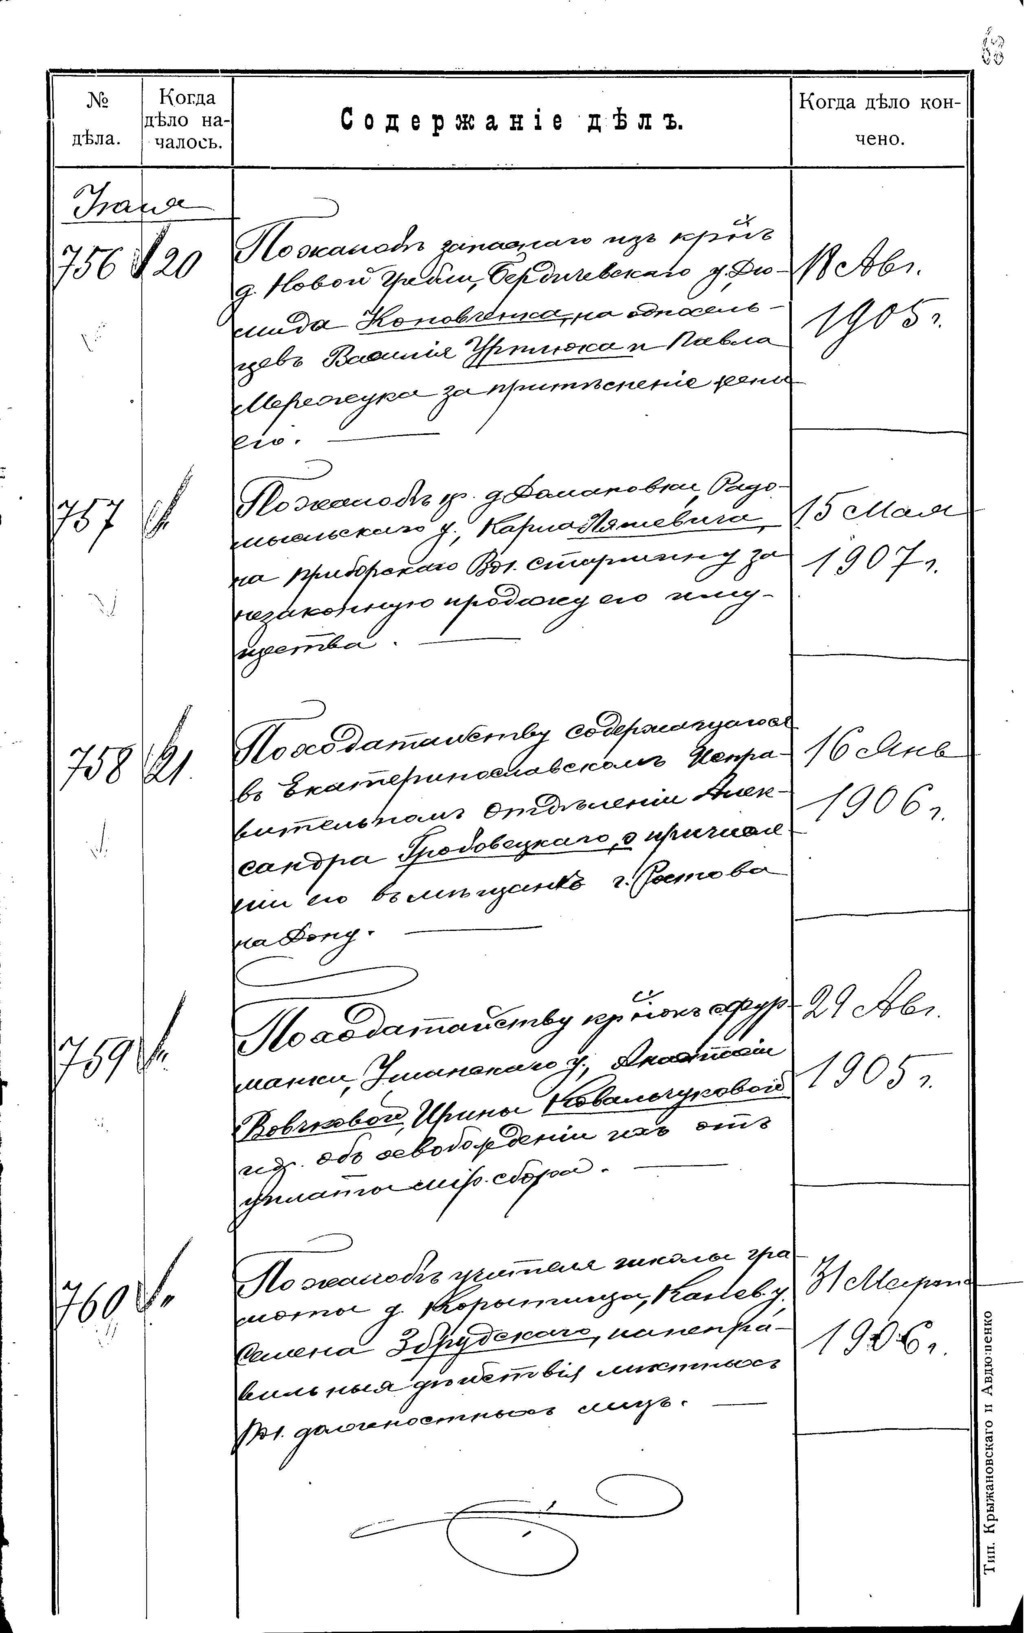 63
№ дѣла.
Когда дѣло началось.
Содержаніе дѣлъ.
Когда дѣло кончено.
756
20
По жалобѣ запаснаго изъ кр-нъ
д. Новой Гребли, Бердичевскаго у. Дио-
мида Коновченка, на односель-
цевъ Василія и Павла
Мережука за притѣсненіе жены
его.
18 Авг.
1905 г.
757
По жалобѣ кр. д. Романовки, Радо-
мысльскаго у., Карла Ляшевича,
на Приборскаго Вол. старшину за
незаконную продажу его иму-
щества.
15 Мая
1907 г.
758
21.
По ходатайству содержащагося
въ Екатеринославскомъ Испра-
вительномъ отдѣленіи Алек-
сандра Гробовецкаго, о причисле-
ніи его въ мѣщане г. Ростова
на Дону.
16 Янв
1906 г.
759
По ходатайству кр-нокъ с. Фур-
манки, Уманскаго у., Анастасіи
Вовчковой, Ирины Ковальчуковой
и др. объ освобожденіи ихъ отъ
уплаты мір. сбора.
29 Авг.
1905 г.
760
По жалобѣ учителя школы гра
моты д. Корытища, Канев. у.
Семена Збрудскаго, на непра-
вильныя дѣйствія мѣстныхъ
Вол. должностныхъ лицъ.
31 Марта
1906 г.
Тип. Крыжановскаго и Авдюшенко